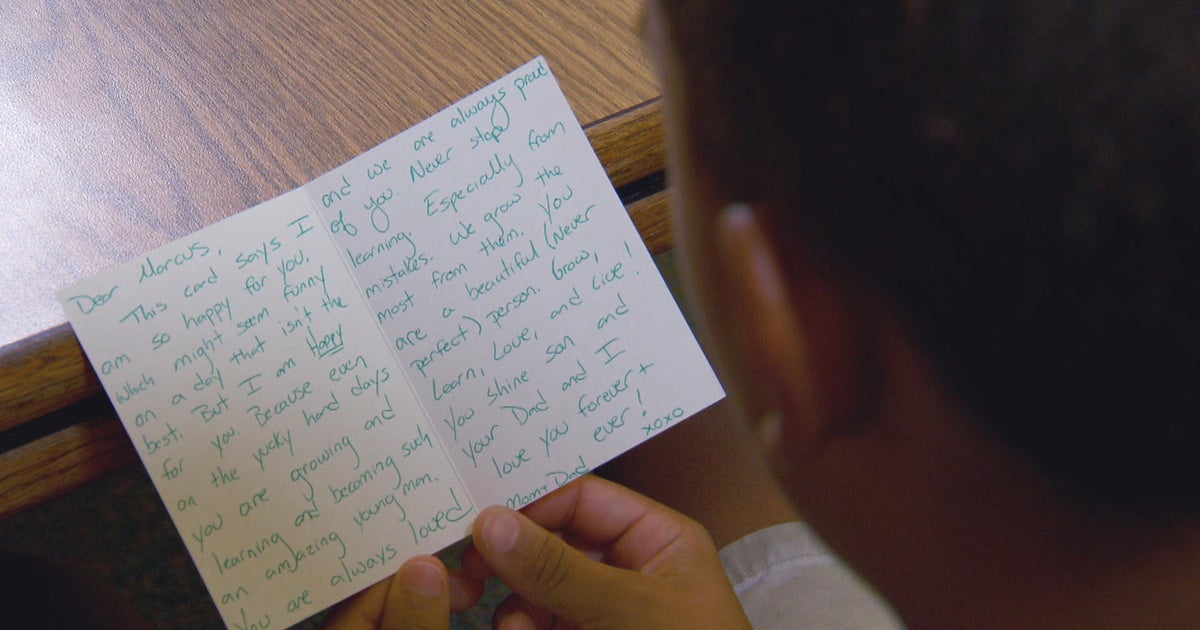 Dear Marcus,
This card says I
am so happy for you,
which might seem funny
on a day that isn't the
best. But I am Happy
for you. Because even
on the yucky hard days
you are growing and
learning and becoming such
an amazing young man.
You are always loved
and we are always proud
of you. Never stop
learning. Especially from
mistakes. We grow the
most from them. You
are a beautiful (Never
perfect) person. Grow,
Learn, Love, and Live!
You shine son and
your Dad and I
love you forever +
ever!
xoxo
Mom + Dad